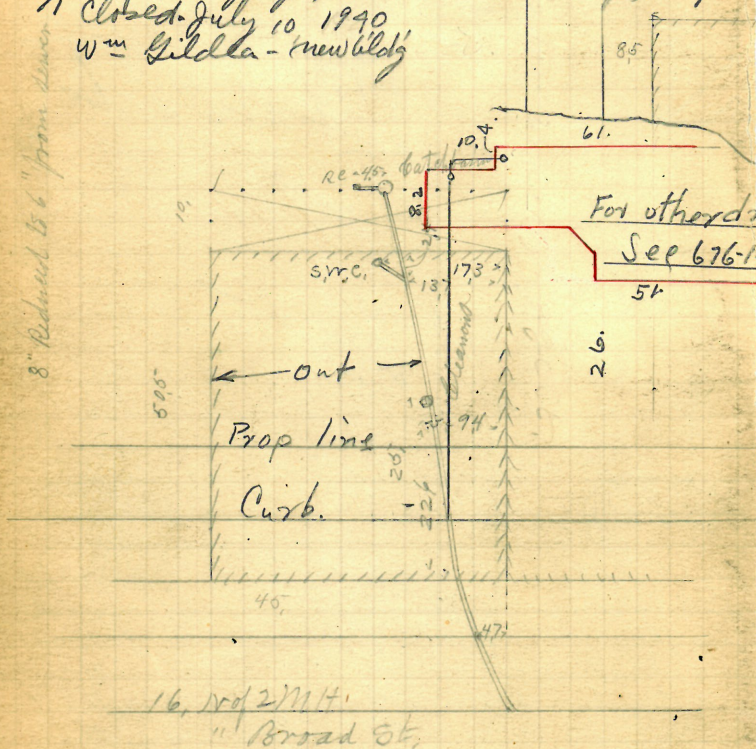 Closed July 10 1940
Wm Gildea - new bldg
85
8" Reduced to 6" from sewer
10. 4.
61.
Re 45
Catchbasin
8.2
10,
For other d
See 676-1
s.w.c.
2,
13
173
51
26.
out
Cleanout
50.5
10
94
Prop line
25,
Curb.
226
45,
47
16, N of 2 M.H.
" Broad St,